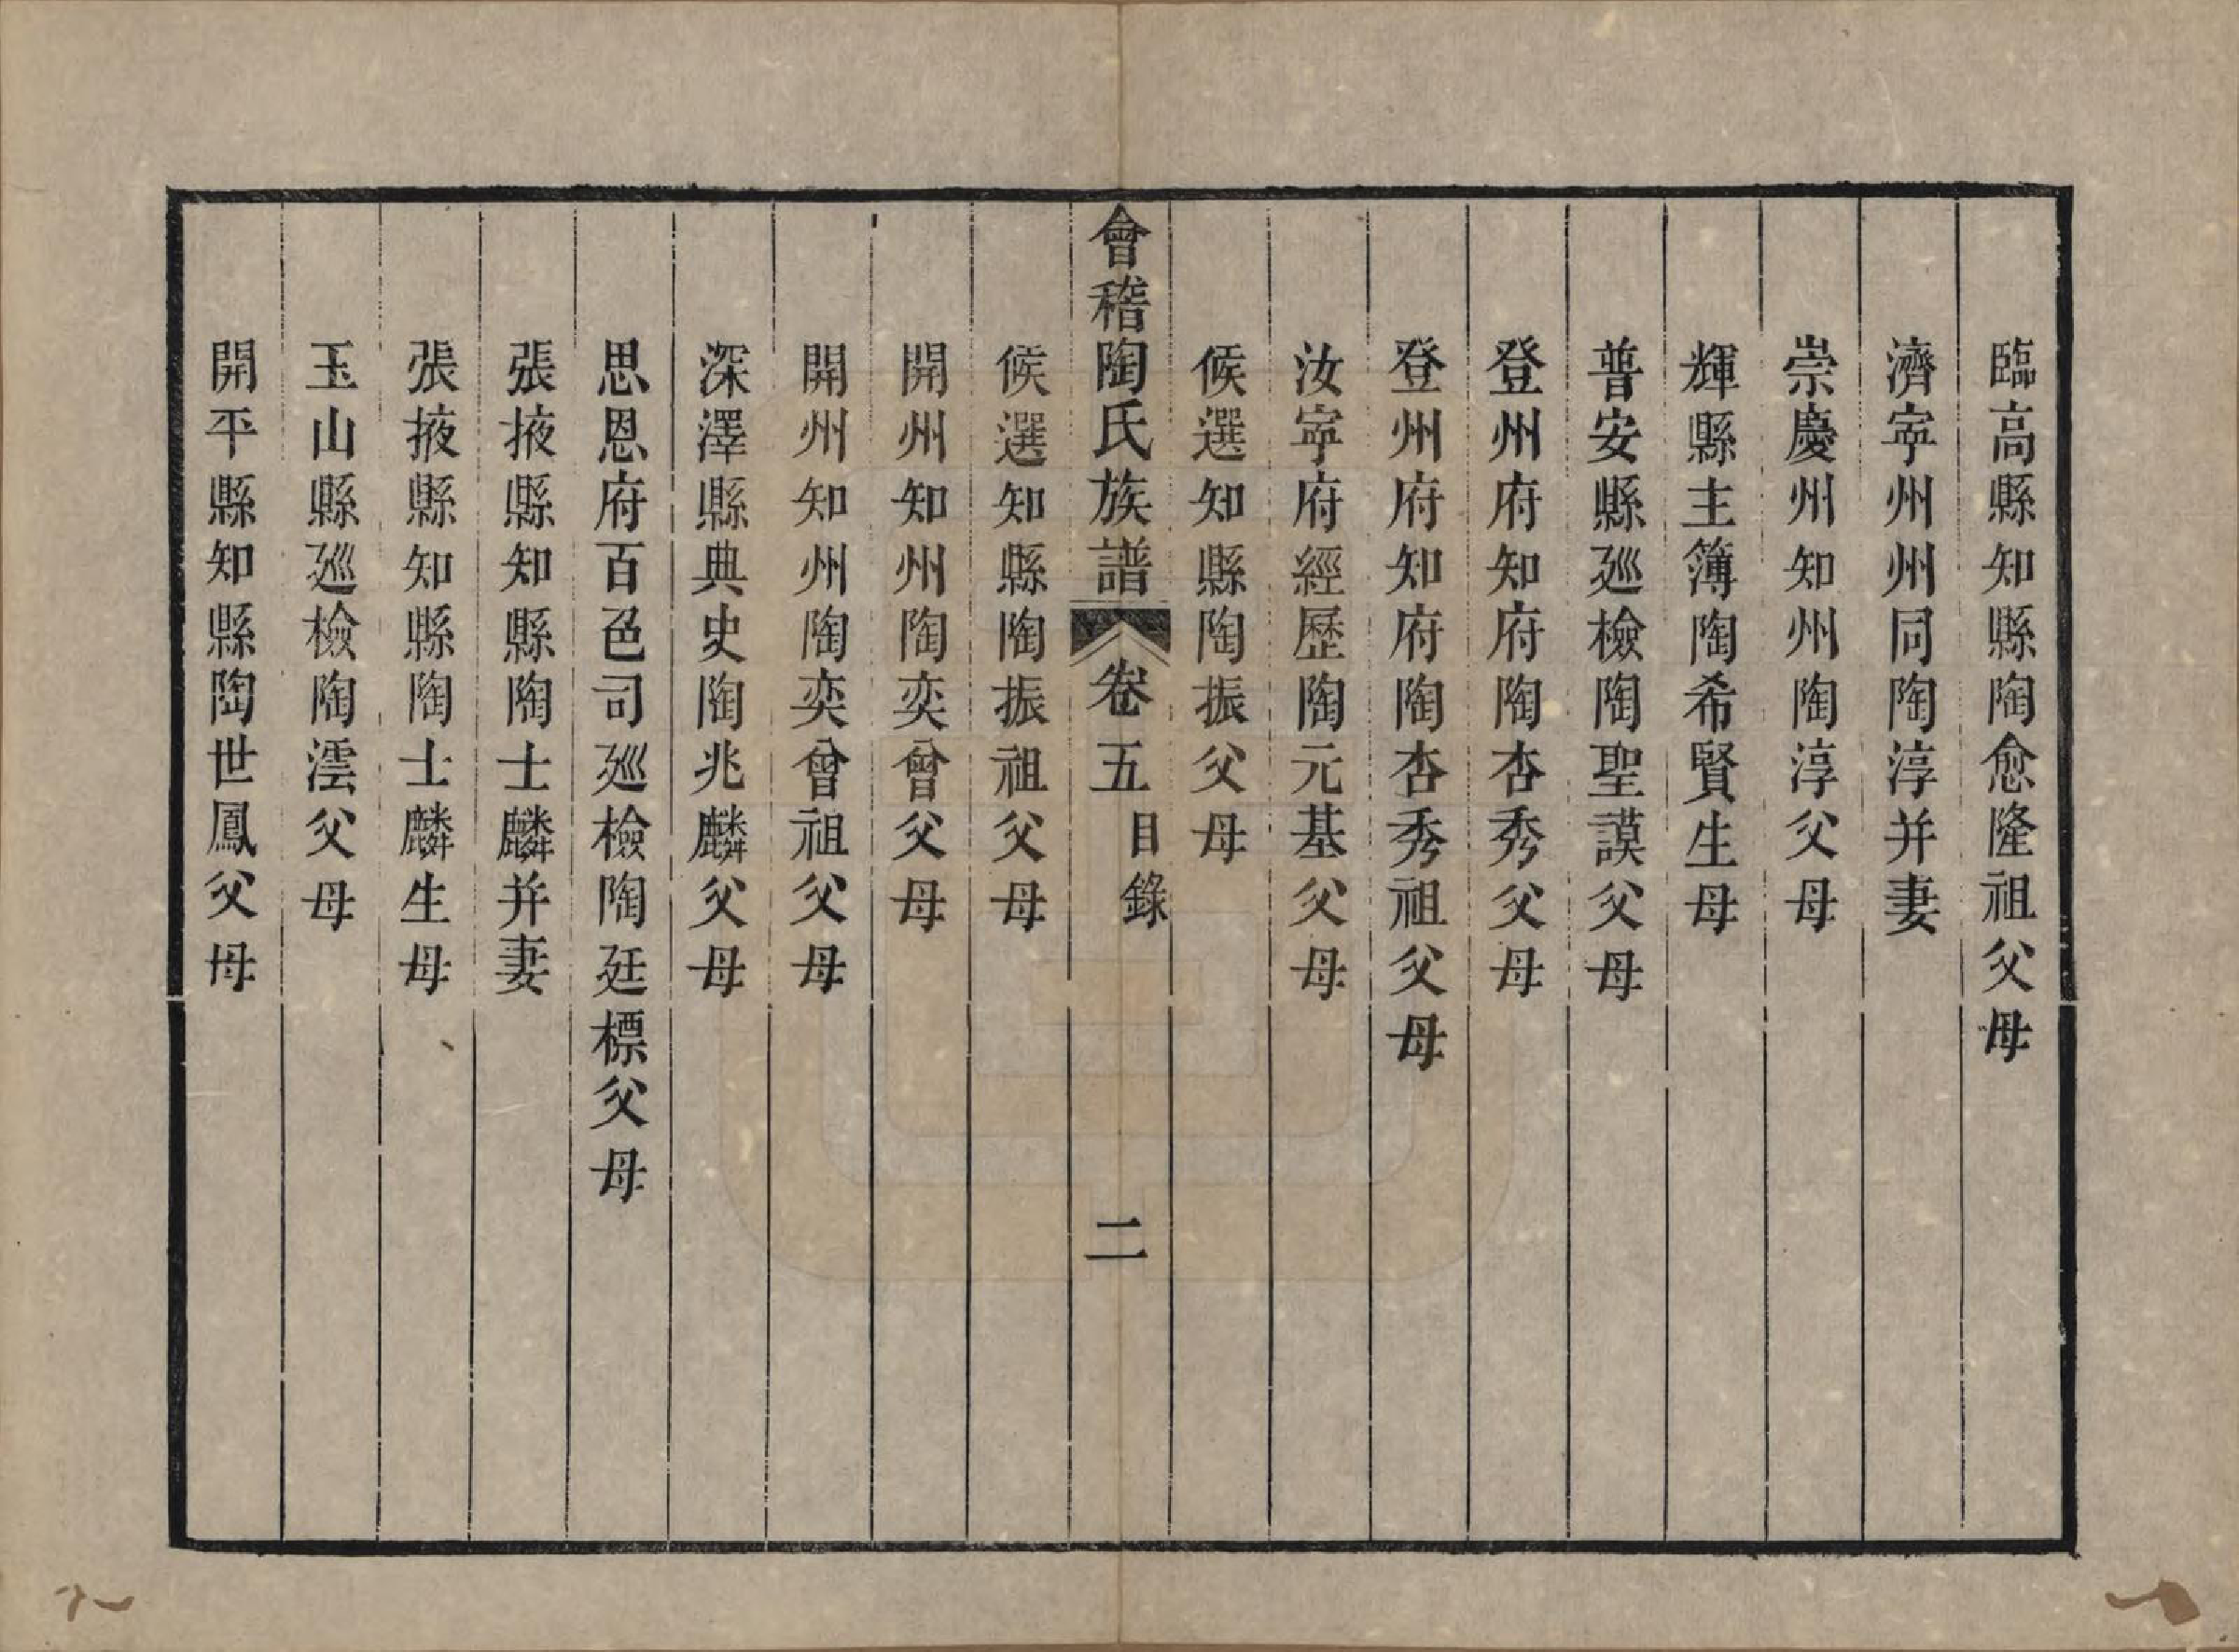 臨高縣知縣陶愈隆祖父母
濟寧州州同陶淳并妻
崇慶州知州陶淳父母
輝縣主簿陶希賢生母
普安縣廵檢陶聖謨父母
登州府知府陶杏秀父母
登州府知府陶杏秀祖父母
汝寧府經歷陶元基父母
候選知縣陶振父母
會稽陶氏族譜 卷五 目錄 二
候選知縣陶振祖父母
開州知州陶奕曾父母
開州知州陶奕曾祖父母
深澤縣典史陶兆麟父母
思恩府百色司廵檢陶廷標父母
張掖縣知縣陶士麟并妻
張掖縣知縣陶士麟生母
玉山縣廵檢陶澐父母
開平縣知縣陶世鳳父母